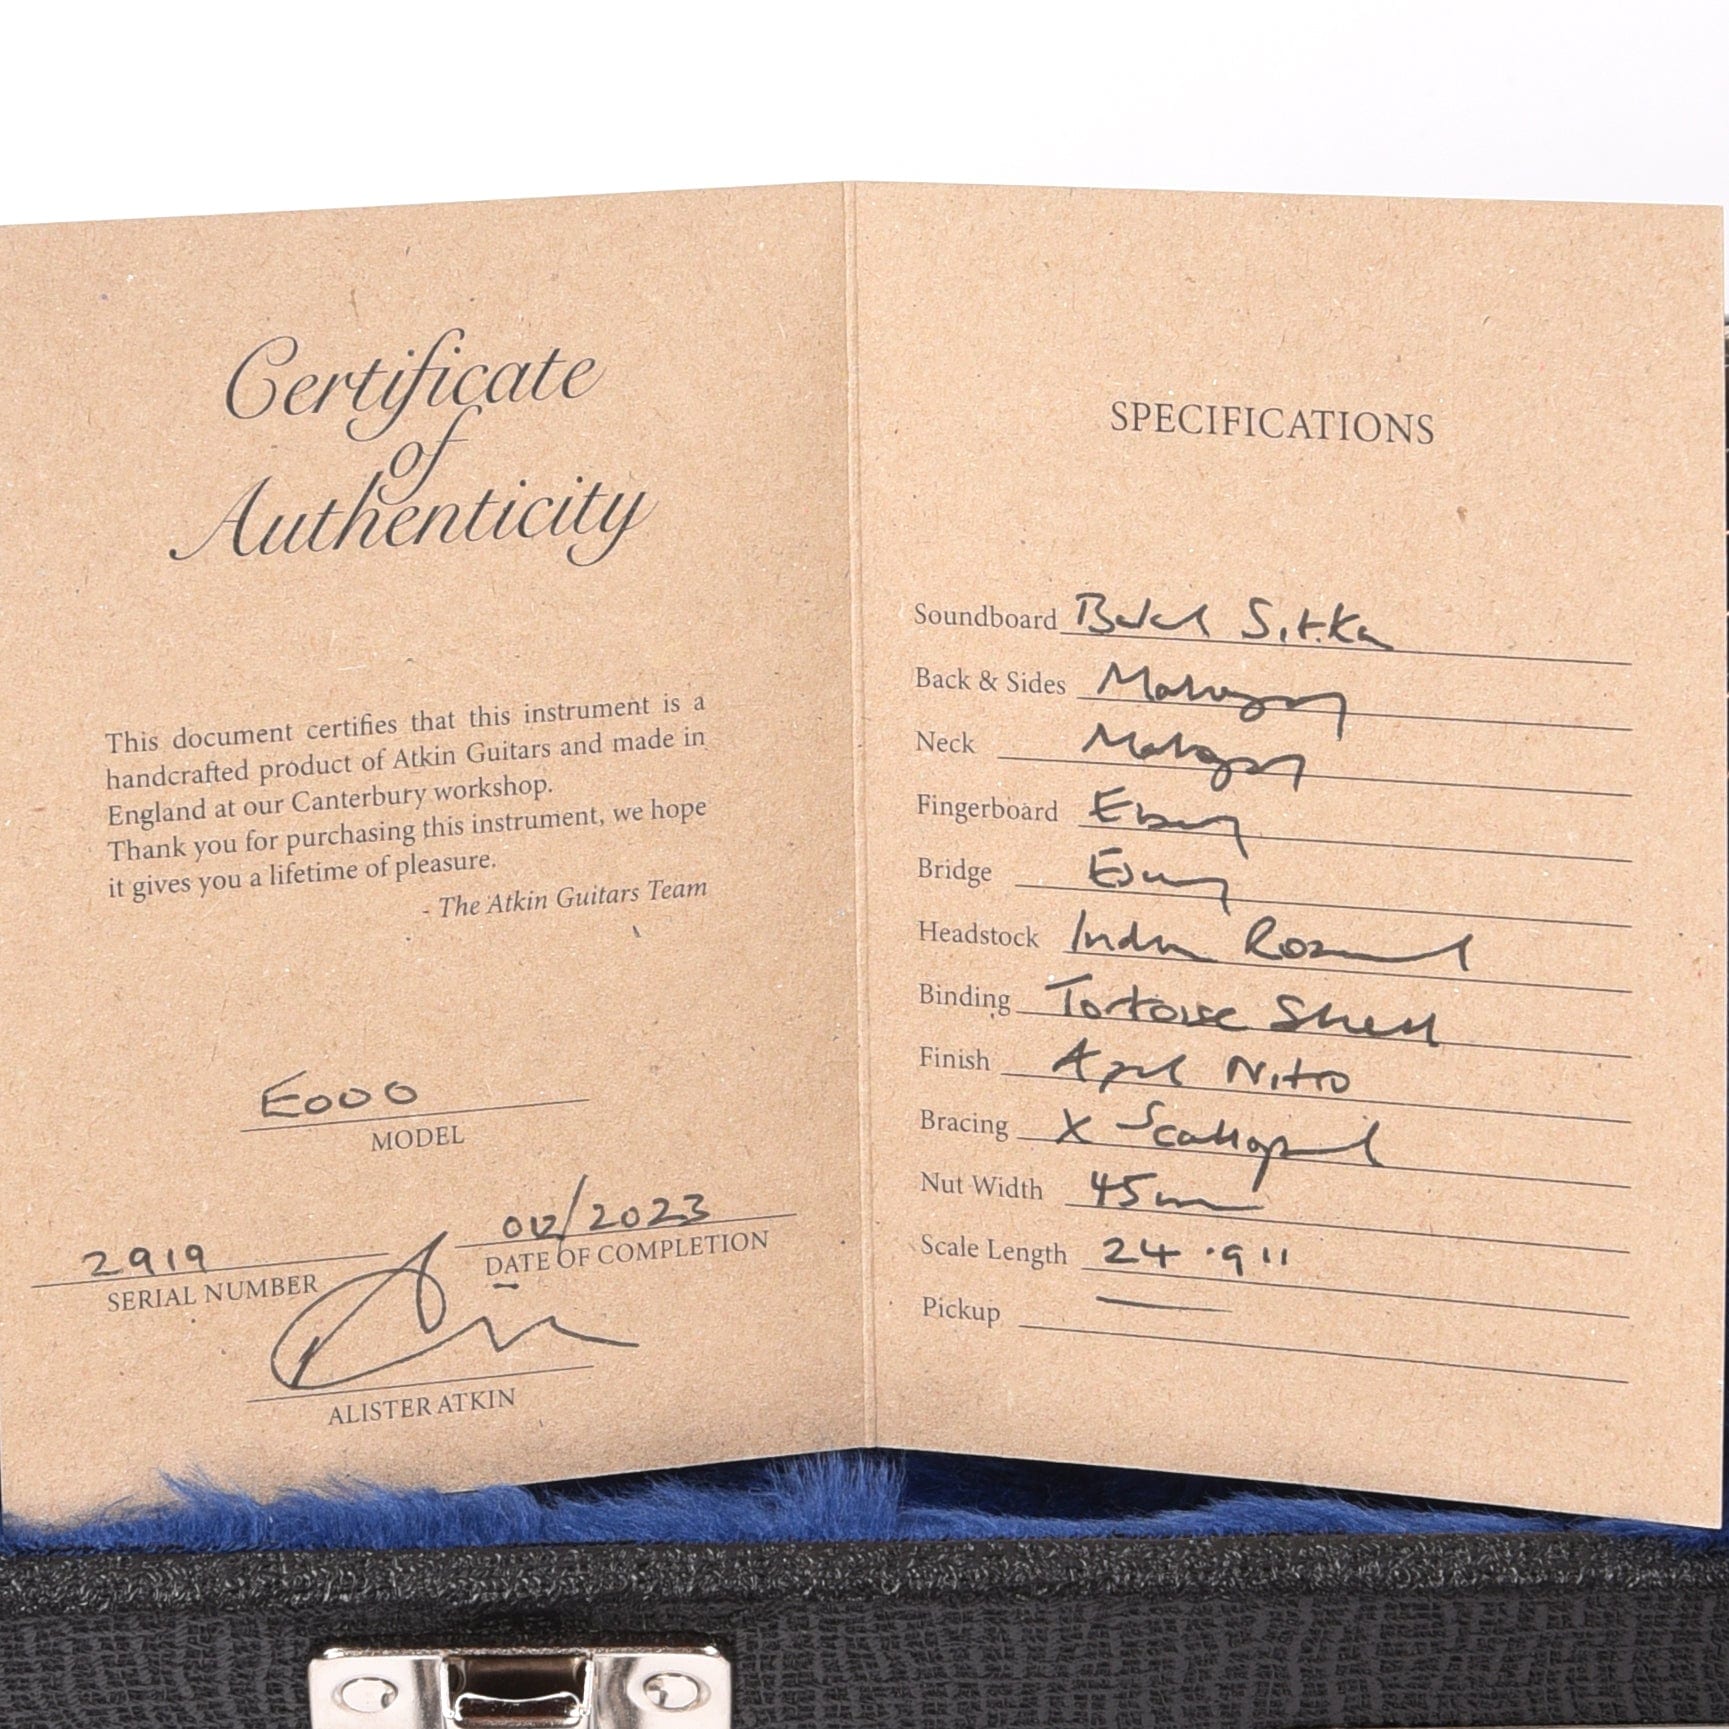 Certificate
of
Authenticity
This document certifies that this instrument is a
handcrafted product of Atkin Guitars and made in
England at our Canterbury workshop.
Thank you for purchasing this instrument, we hope
it gives you a lifetime of pleasure.
- The Atkin Guitars Team
E000
MODEL
2919
SERIAL NUMBER
/2023
DATE OF COMPLETION
ALISTER ATKIN
SPECIFICATIONS
Soundboard Baked Sitka
Back & Sides Mahogany
Neck Mahogany
Fingerboard Ebony
Bridge Ebony
Headstock Indian Rosewood
Binding Tortoise Shell
Finish Aged Nitro
Bracing X Scalloped
Nut Width 45mm
Scale Length 24.9"
Pickup —